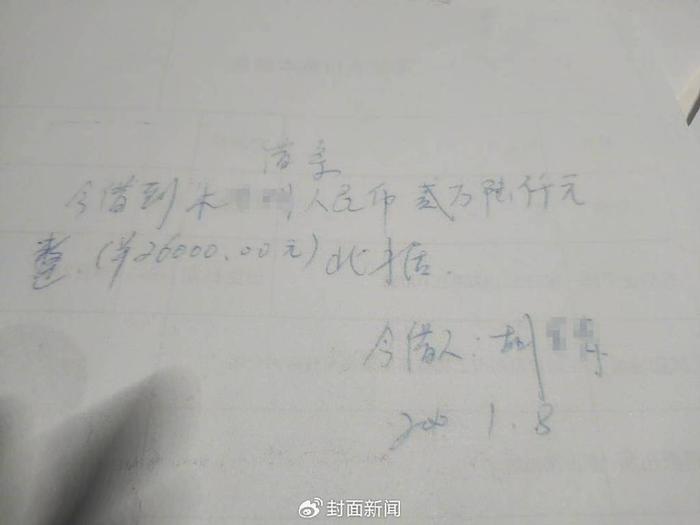 借条
今借到朱 人民币贰万陆仟元
整.(¥26000.00元)此据.
今借人:胡
1.8
封面新闻